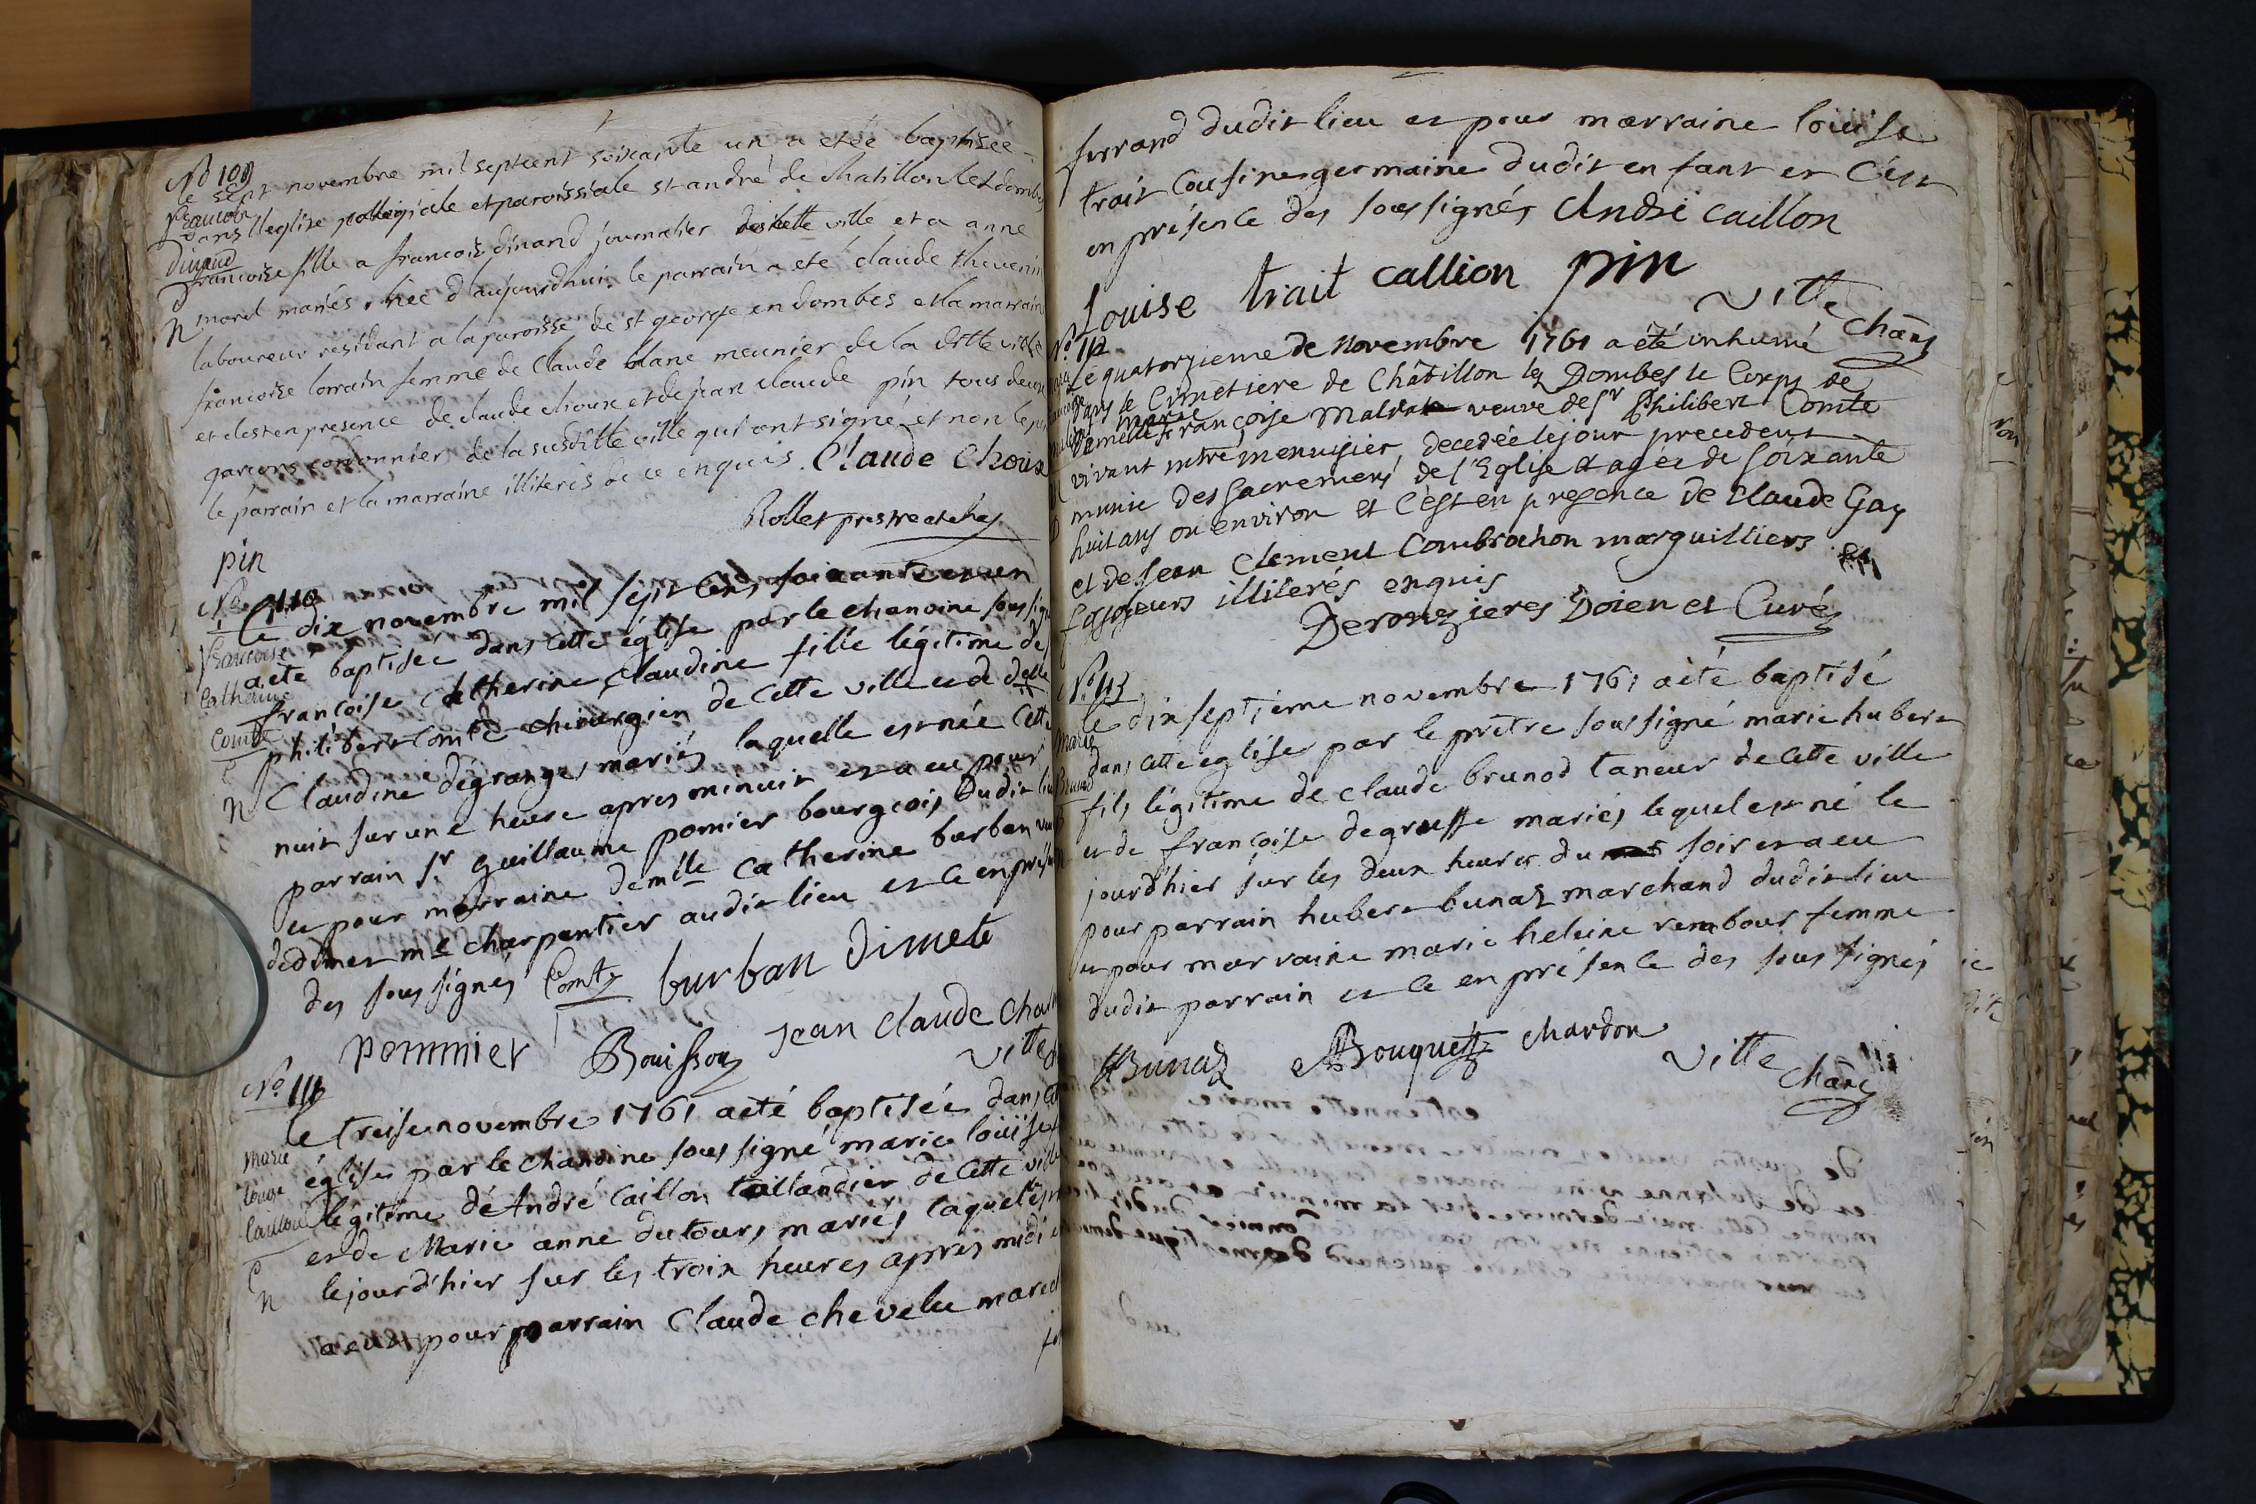 No 109
le sept novembre mil septcent soixante un a etée baptisée
francoise
dans l'eglise collegiale et paroissiale st andré de chatillon les dombes
Dinand
francoise fille a francois dinand journalier de cette ville et a anne
morel mariés, née d'aujourdhui. le parrain a eté claude thevenin
N
laboureur residant a la paroisse de st george en dombes et la marraine
francoise lorrain femme de Claude blanc meunier de la ditte ville
et c'est en presence de claude choux et de jean claude pin tous deux
garcons cordonnier de la susditte ville qui ont signé et non le
le parrain et la marraine illiterés de ce enquis. Claude Choux
Rollet prestre et
pin
No 110
Le dix novembre mil sept cens soixante et un
aeté baptisée dans cette église par le chanoine sous signé
francoise
Catherine
françoise Catherine Claudine fille légitime de
Comte
philibert Comte chirurgien de cette ville et de delle
Claudine dégranges mariés laquelle est née cette
N
nuit sur une heure apres minuit et a eu pour
parrain sr guillaume pomier bourgeois dudit lieu
et pour marraine demlle Catherine burban
de dimet me charpentier audit lieu et ce en
des sous signés Comte burban Dimete
pommier Bouisson Jean claude
Ville
No 111
le treise novembre 1761 aeté baptisée dans
marie
louise
Caillon
église par le chanoine sous signé marie louise
légitime dé André Caillon taillandier de cette ville
et de Marie anne dutours mariés laquelle
N
le jourd'hier sur les trois heures apres midi
a eu pour parrain Claude chevelu
ferrand dudit lieu et pour marraine louise
trait Cousine germaine dudit enfant et C'est
en présence des sous signés André caillon
Louise trait callion pin
Ville chãne
No 112
Le quatorzieme de Novembre 1761 a été inhumé
dans le Cimetiere de Châtillon les Dombes le Corps de
marie
Demelle françoise veuve de sr Philibert Comte
vivant mtre menuisier, decedée le jour precedent
munie des sacremens de l'Eglise et agée de soixante
huit ans ou environ et c'est en presence de Claude Gay
et de Jean Clement Combrochon marguilliers et
fossoyeurs illiterés enquis
Deronzieres Doien et Curé
No 113
le dix septiéme novembre 1761 aeté baptisé
marie
dans cette eglise par le prêtre sous signé marie hubert
Brunod
fils légitime de claude brunod taneur de cette ville
et de françoise degrusse mariés lequel est né le
jourd'hier sur les deux heures du soir et a eu
pour parrain hubert bunaz marchand dudit lieu
et pour marraine marie heleine rembour femme
dudit parrain et ce en présence des sous signés
HBunaz ABouquet chardon
Ville chãne